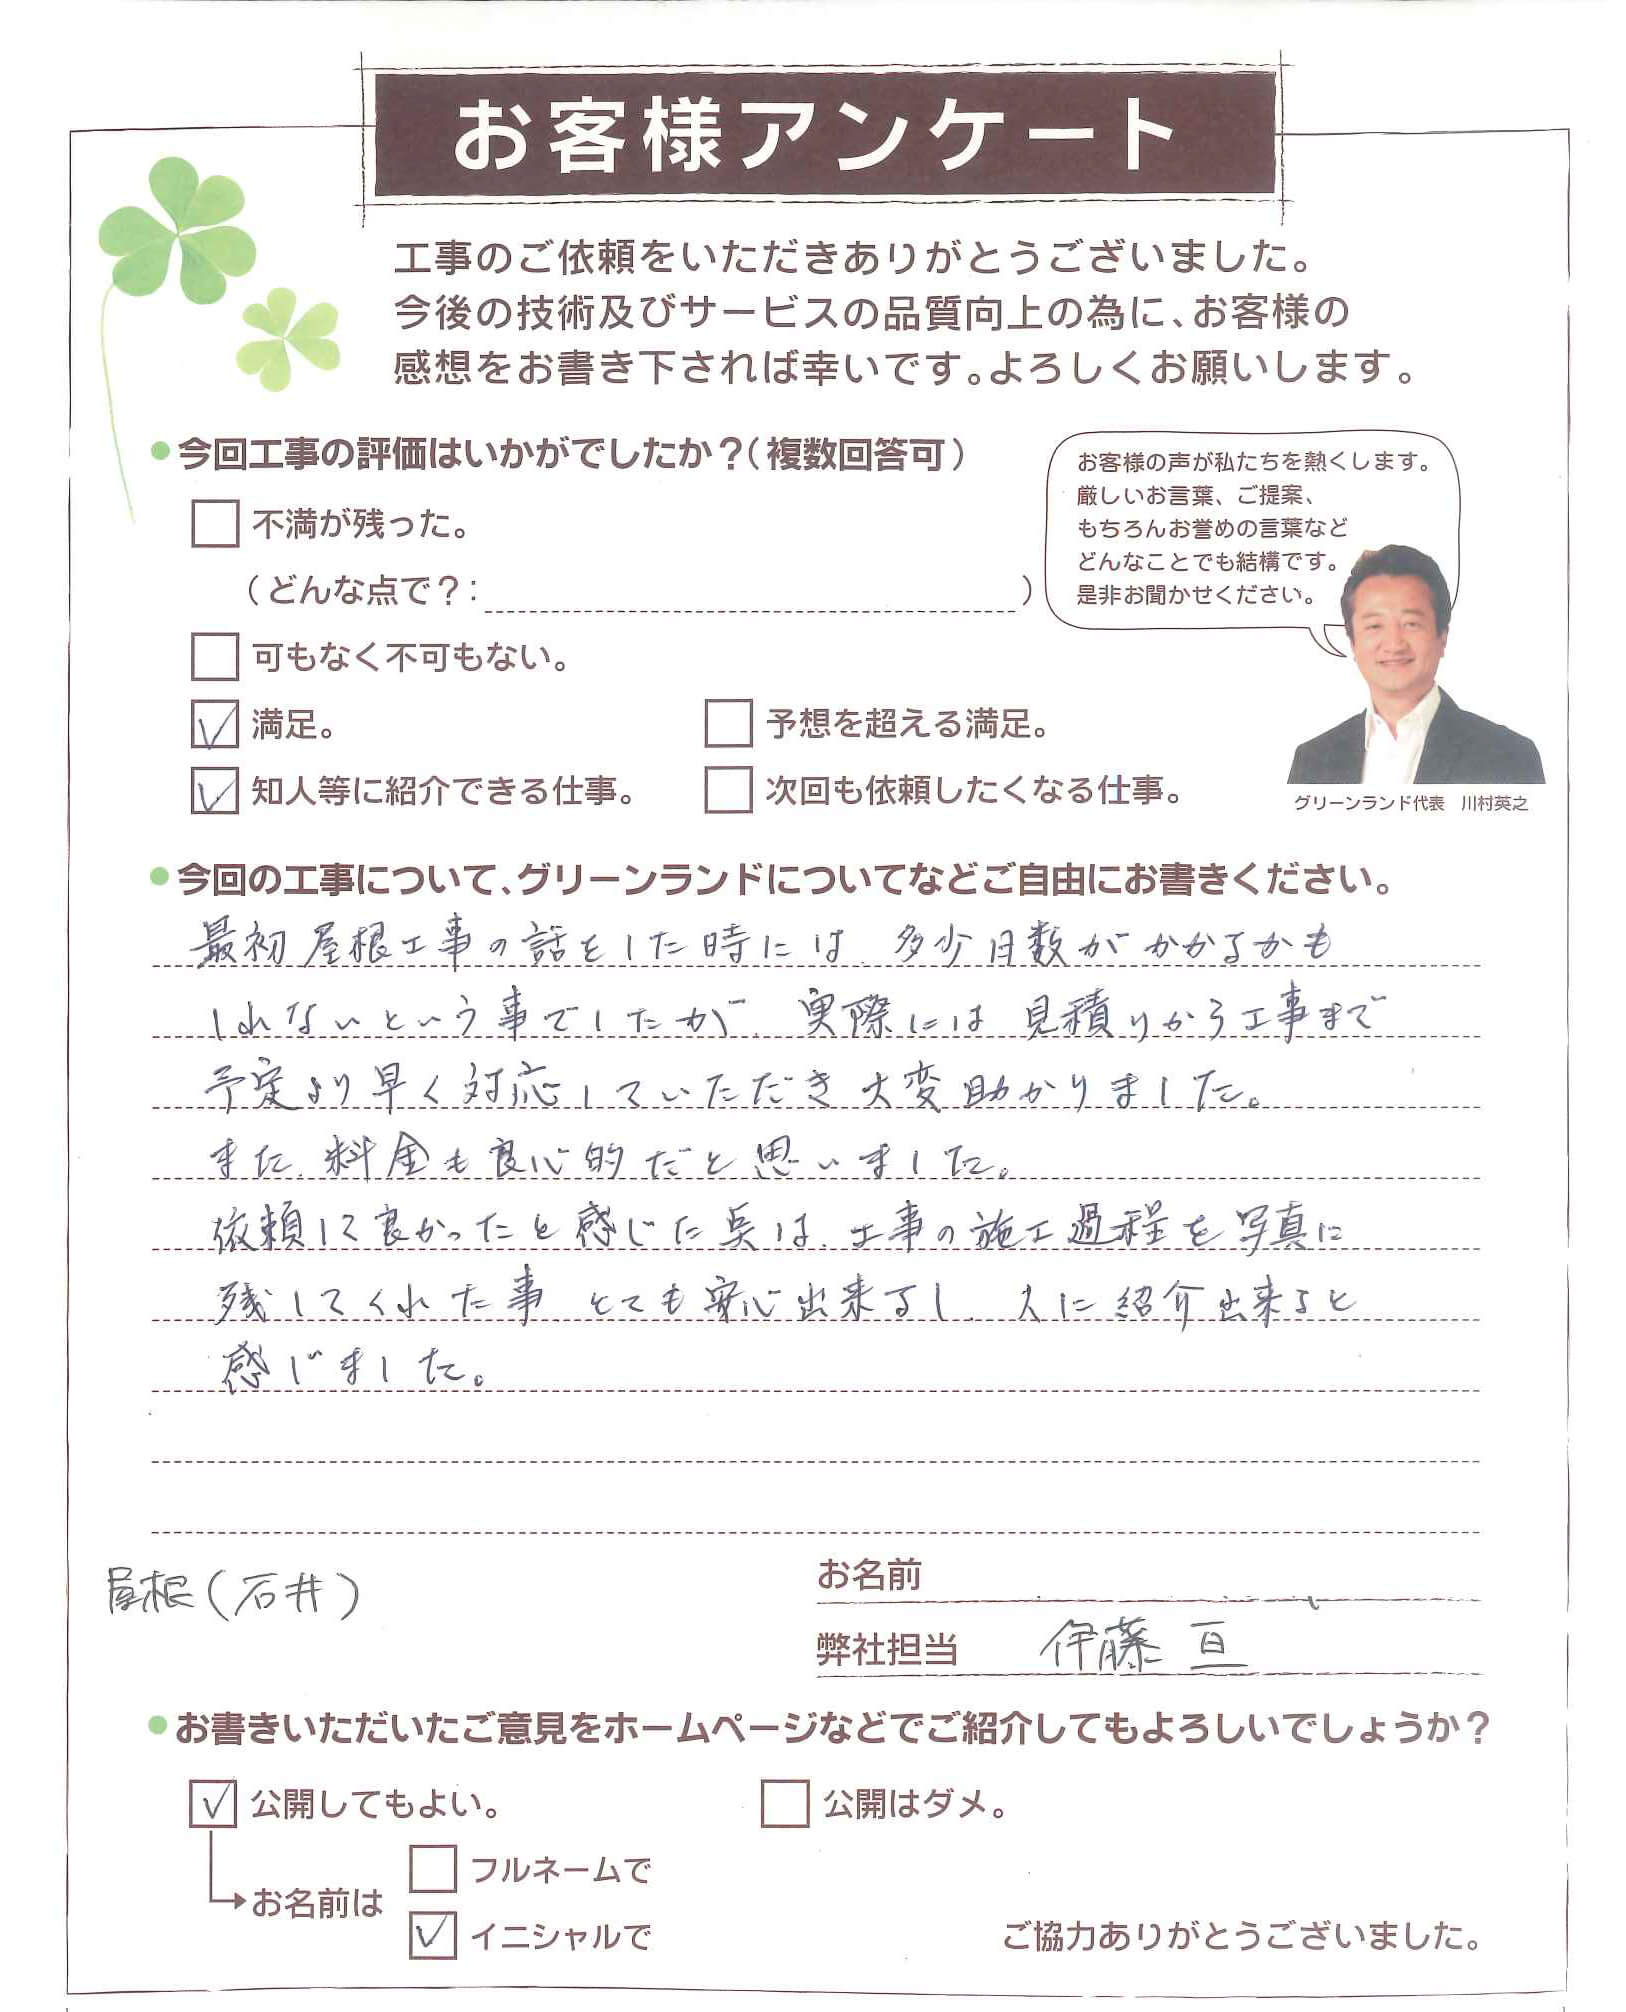 お客様アンケート
工事のご依頼をいただきありがとうございました。
今後の技術及びサービスの品質向上の為に、お客様の
感想をお書き下されば幸いです。よろしくお願いします。
●今回工事の評価はいかがでしたか？（複数回答可）
不満が残った。
（どんな点で？： ）
可もなく不可もない。
満足。
予想を超える満足。
知人等に紹介できる仕事。
次回も依頼したくなる仕事。
お客様の声が私たちを熱くします。
厳しいお言葉、ご提案、
もちろんお誉めの言葉など
どんなことでも結構です。
是非お聞かせください。
グリーンランド代表 川村英之
●今回の工事について、グリーンランドについてなどご自由にお書きください。
最初屋根工事の話をした時には、多少日数がかかるかも
しれないという事でしたが、実際には見積りから工事まで
予定より早く対応していただき大変助かりました。
また、料金も良心的だと思いました。
依頼して良かったと感じた点は、工事の施工過程を写真に
残してくれた事、とても安心出来るし、人に紹介出来ると
感じました。
屋根（石井）
お名前
弊社担当 伊藤 亘
●お書きいただいたご意見をホームページなどでご紹介してもよろしいでしょうか？
公開してもよい。
公開はダメ。
お名前は
フルネームで
イニシャルで
ご協力ありがとうございました。